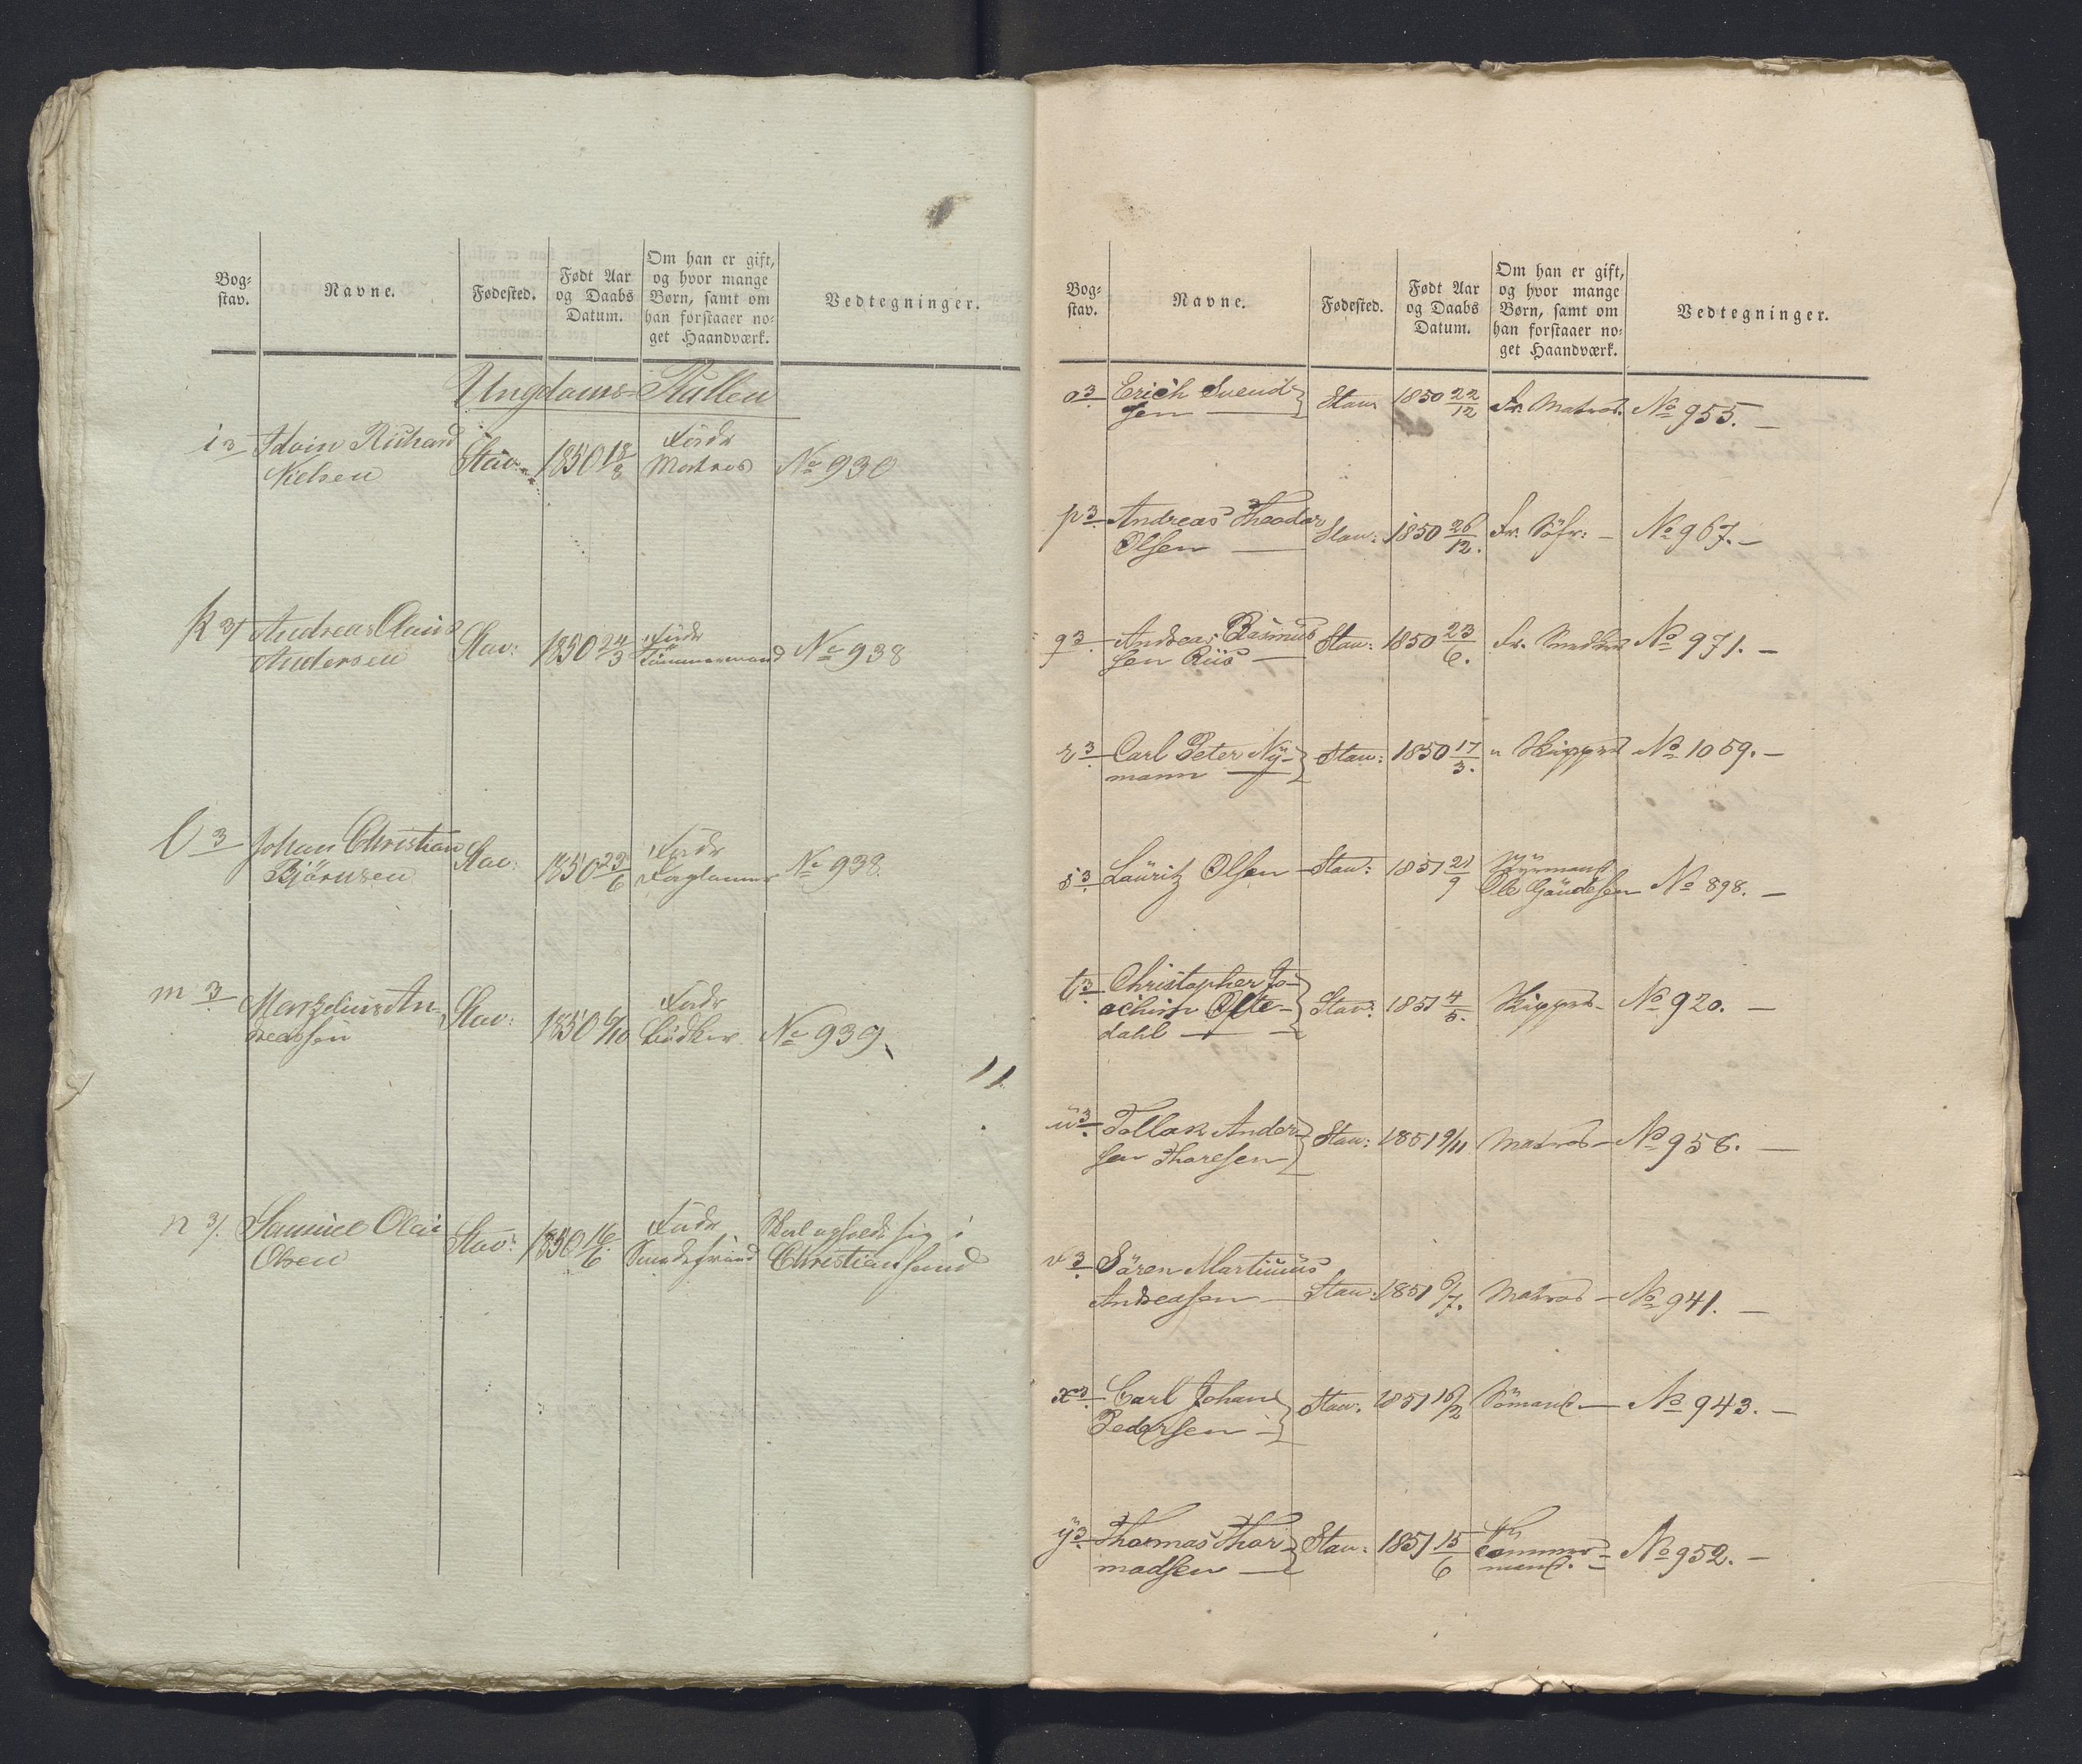 Bog-
stav.
Navne.
Fødested.
Født Aar
og Daabs
Datum.
Om han er gift,
og hvor mange
Børn, samt om
han forstaaer no-
get Haandværk.
Vedtegninger.
Ungdoms-Rullen
i 3 Edvin Richard
Nielsen
Stav: 1850 18/8
Fadr
Matros
No 930
k 3 Andreas
Andersen
Stav: 1850 24/3
Fadr
Tömmermand
No 938
l 3 Johan Christian
Björnsen
Stav: 1850 23/6
Fadr
No 938.
m 3 An-
dreassen
Stav: 1850 6/10
Fadr
Bödker
No 939
n 3 Samuel Olai
Olsen
Stav: 1850 16/6
Fadr
Skal opholde sig i
Christiansund
Bog-
stav.
Navne.
Fødested.
Født Aar
og Daabs
Datum.
Om han er gift,
og hvor mange
Børn, samt om
han forstaaer no-
get Haandværk.
Vedtegninger.
o 3 Erich Svend-
sen
Stav: 1850 22/12 Fr. Matros. No 955. —
p 3 Andreas Theodor
Olsen —
Stav: 1850 26/12. Fr. Söfr: — No 967. —
q 3 Andreas Rasmus
sen Riis —
Stav: 1850 23/6. Fr. Snedker No 971. —
r 3 Carl Peter Ny-
mann —
Stav: 1850 17/3. " Skipper No 1059. —
s 3 Lauritz Olsen — Stav: 1851 21/9
Styrmand
Ole Gaudesen No 898. —
t 3 Christopher Jo-
achim Ofte-
dahl —
Stav: 1851 4/5. Skipper — No 920. —
u 3 Tollak Ander-
sen Thoresen
Stav: 1851 9/11 Matros — No 958. —
v 3 Sören Martinius
Andreasen —
Stav: 1851 6/7. Matros — No 941. —
x 3 Carl Johan
Pedersen —
Stav: 1851 16/2 Sömand — No 943. —
y 3 Thomas Thor-
madsen —
Stav: 1851 15/6
Tömmer-
mand. — No 952. —